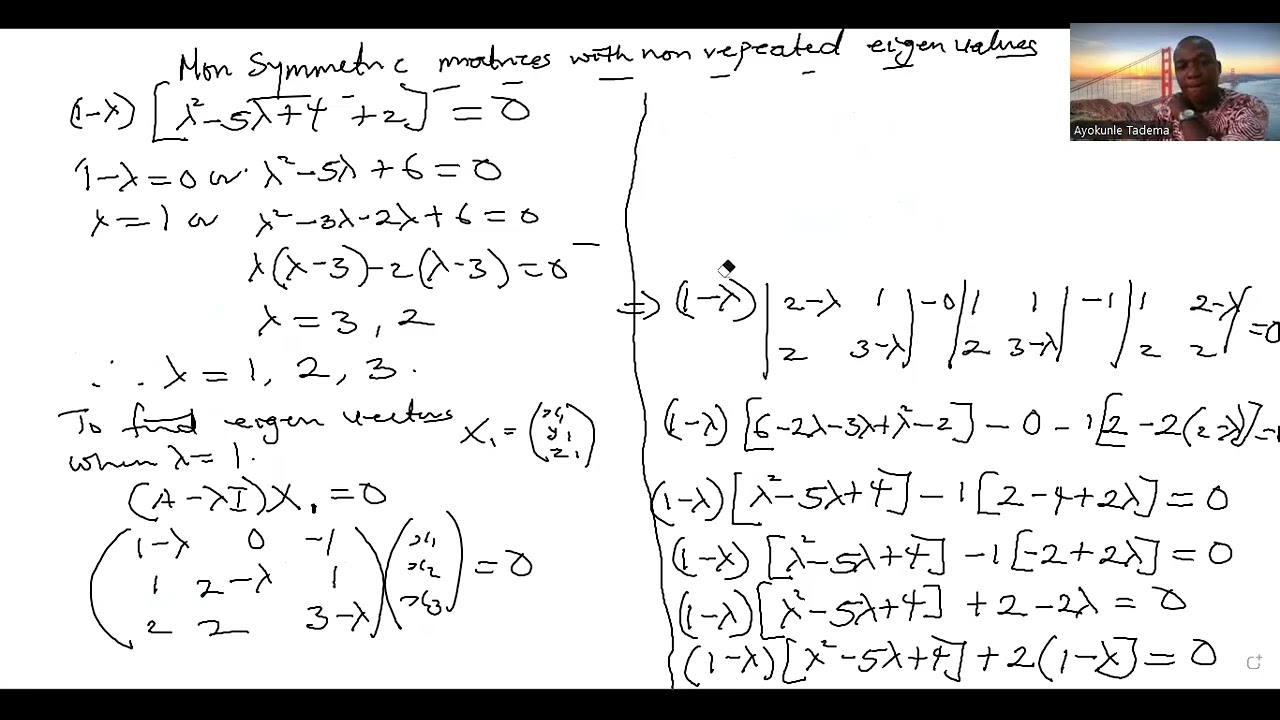 Non Symmetric matrices with non repeated eigen values
(1-λ) [λ²-5λ+4 +2] = 0
1-λ=0 or λ²-5λ+6=0
λ=1 or λ²-3λ-2λ+6=0
λ(λ-3)-2(λ-3)=0
λ=3, 2
∴ λ=1, 2, 3.
To find eigen vectors X₁ = (x₁ y₁ z₁)
when λ=1.
(A-λI)X₁=0
(1-λ 0 -1) (x₁)
(1 2-λ 1) (x₂) = 0
(2 2 3-λ) (x₃)
⇒ (1-λ) |2-λ 1| -0 |1 1| -1 |1 2-λ| =0
|2 3-λ| |2 3-λ| |2 2|
(1-λ) [6-2λ-3λ+λ²-2] - 0 - 1[2-2(2-λ)]=
(1-λ)[λ²-5λ+4] - 1[2-4+2λ]=0
(1-λ) [λ²-5λ+4] -1[-2+2λ]=0
(1-λ)[λ²-5λ+4] +2-2λ=0
(1-λ)[λ²-5λ+4]+2(1-λ]=0
Ayokunle Tadema